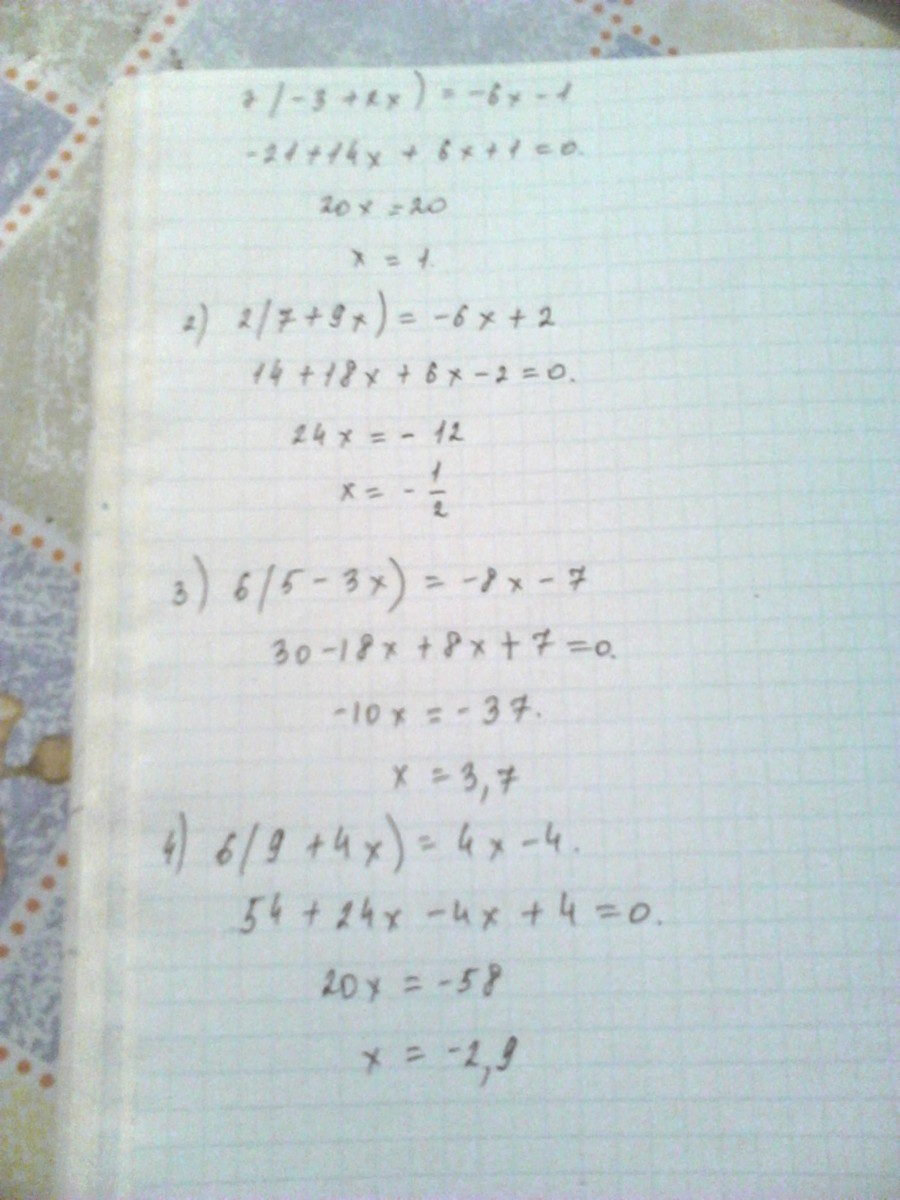 7(-3+2x) = -6x-1
-21+14x + 6x+1=0.
20x = 20
x = 1.
2) 2(7+9x) = -6x+2
14+18x+6x-2=0.
24x = -12
x = -1/2
3) 6(5-3x) = -8x-7
30-18x+8x+7=0.
-10x = -37.
x = 3,7
4) 6(9+4x) = 4x-4.
54+24x-4x+4=0.
20x = -58
x = -2,9